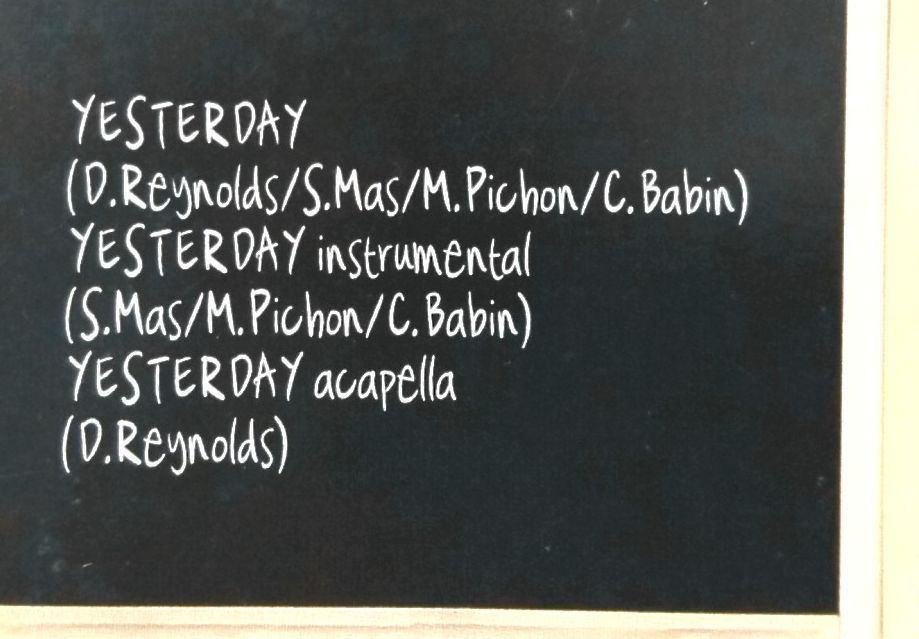 YESTERDAY
(D.Reynolds/S.Mas/M.Pichon/C.Babin)
YESTERDAY instrumental
(S.Mas/M.Pichon/C.Babin)
YESTERDAY acapella
(D.Reynolds)